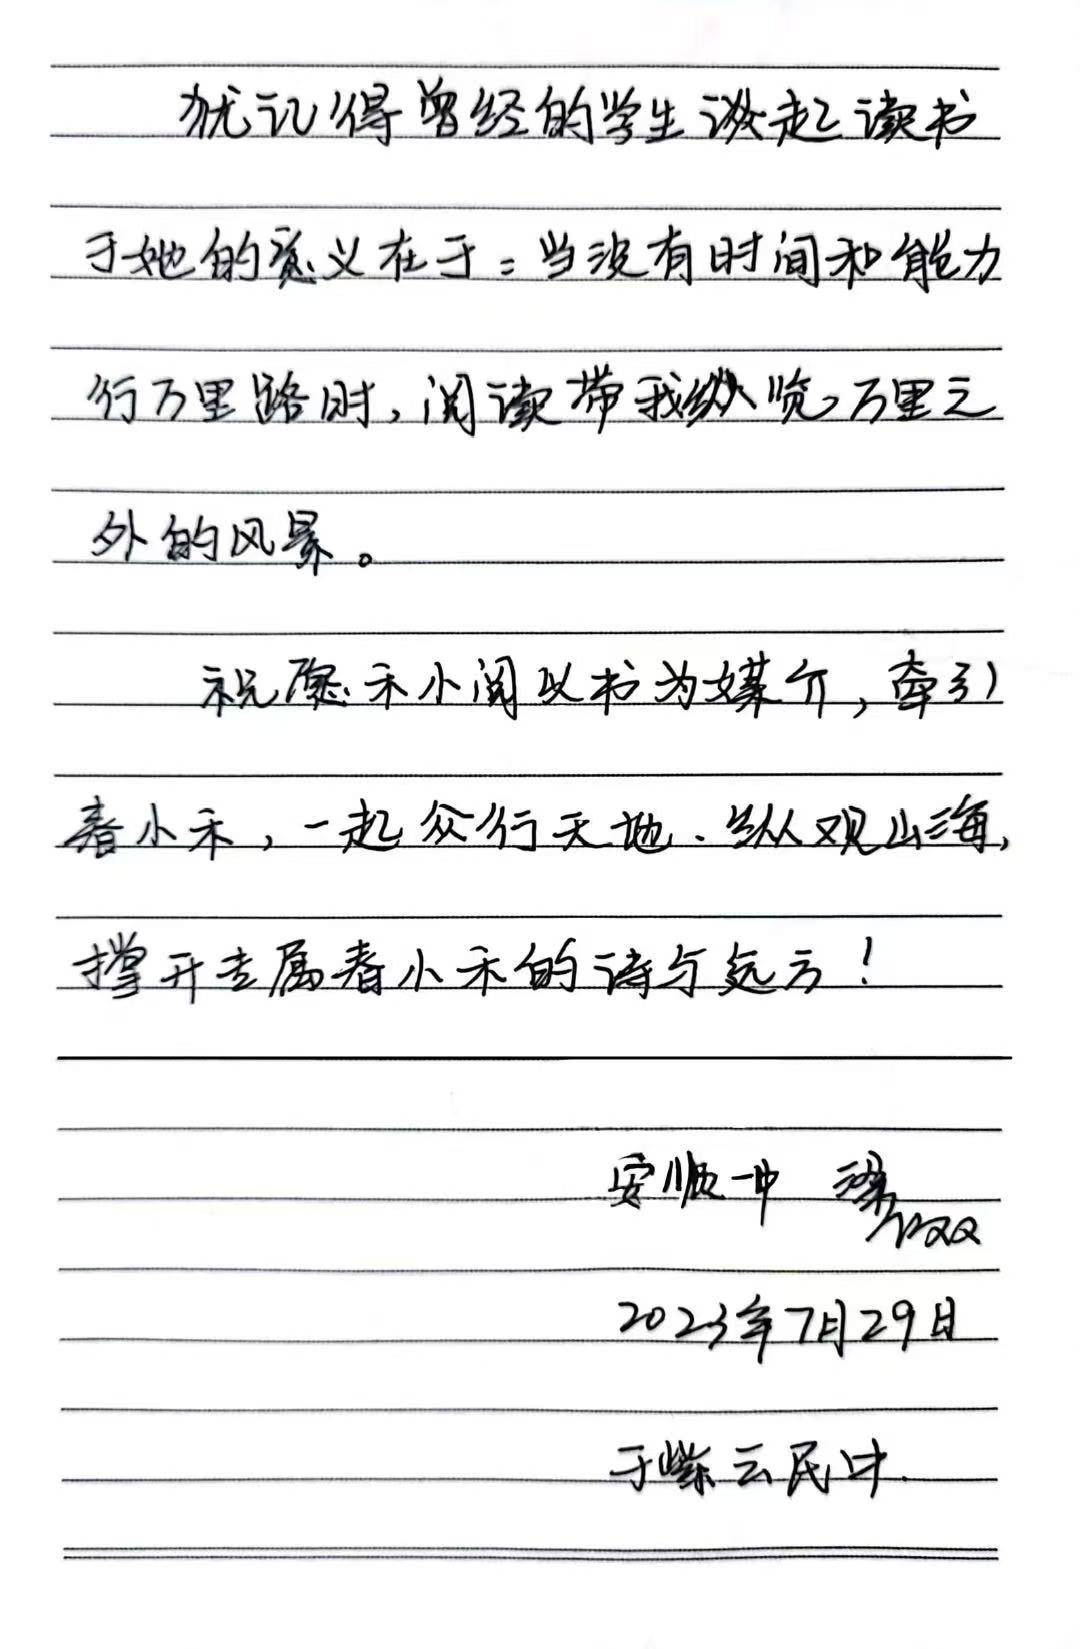 犹记得曾经的学生谈起读书
于她的意义在于：当没有时间和能力
行万里路时，阅读带我纵览万里之
外的风景。
祝愿禾小阅以书为媒介，牵引
春小禾，一起众行天地、纵观山海，
撑开专属春小禾的诗与远方！
安顺一中 梁
2023年7月29日
于紫云民中.